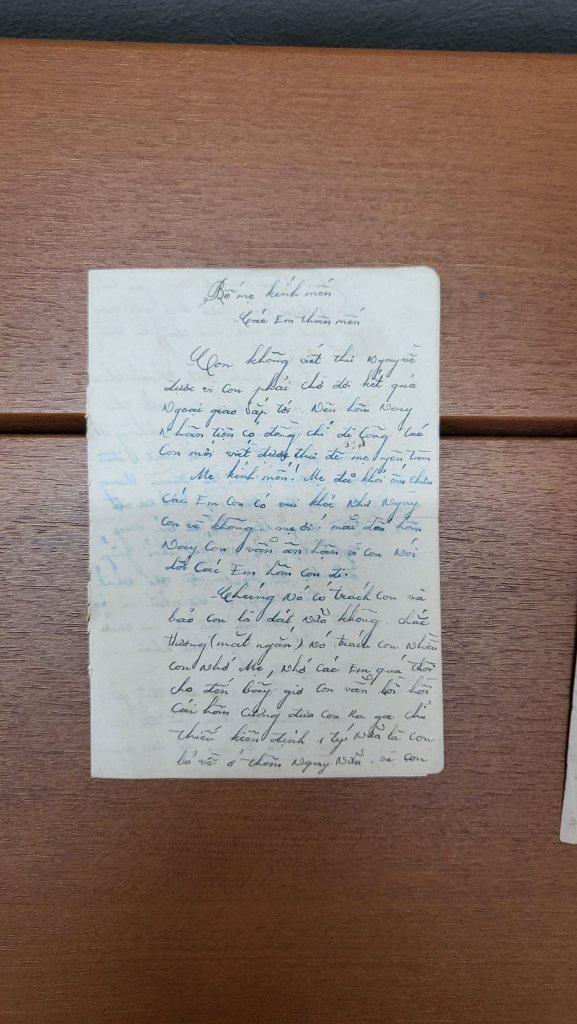 Bố mẹ kính mến
Các Em thân mến
Con không viết thư Ngay về
được vì con phải chờ đợi kết quả
Ngoại giao sắp tới. Nên hôm Nay
Nhân tiện có đồng chí đi Công tác
Con mới viết được thư để mẹ yên tâm
Mẹ kính mến! Mẹ đã khỏi ốm chưa
Các Em Con có vui khỏe Như Ngày
Con về không. mẹ ơi! mãi đến hôm
Nay Con vẫn ân hận vì con Nói
dối Các Em hôm con đi.
Chúng Nó có trách Con và
bảo con là dát Nữa không.
thương (mắt ngắn) Nó trách con Nhiều
Con Nhớ Mẹ, Nhớ Các Em quá thôi
cho đến bây giờ con vẫn bồi hồi
Cái hôm Cương đưa Con Ra ga chỉ
thiếu kiên định 1 tý Nữa là Con
bỏ về ở thêm Ngày Nữa. và con